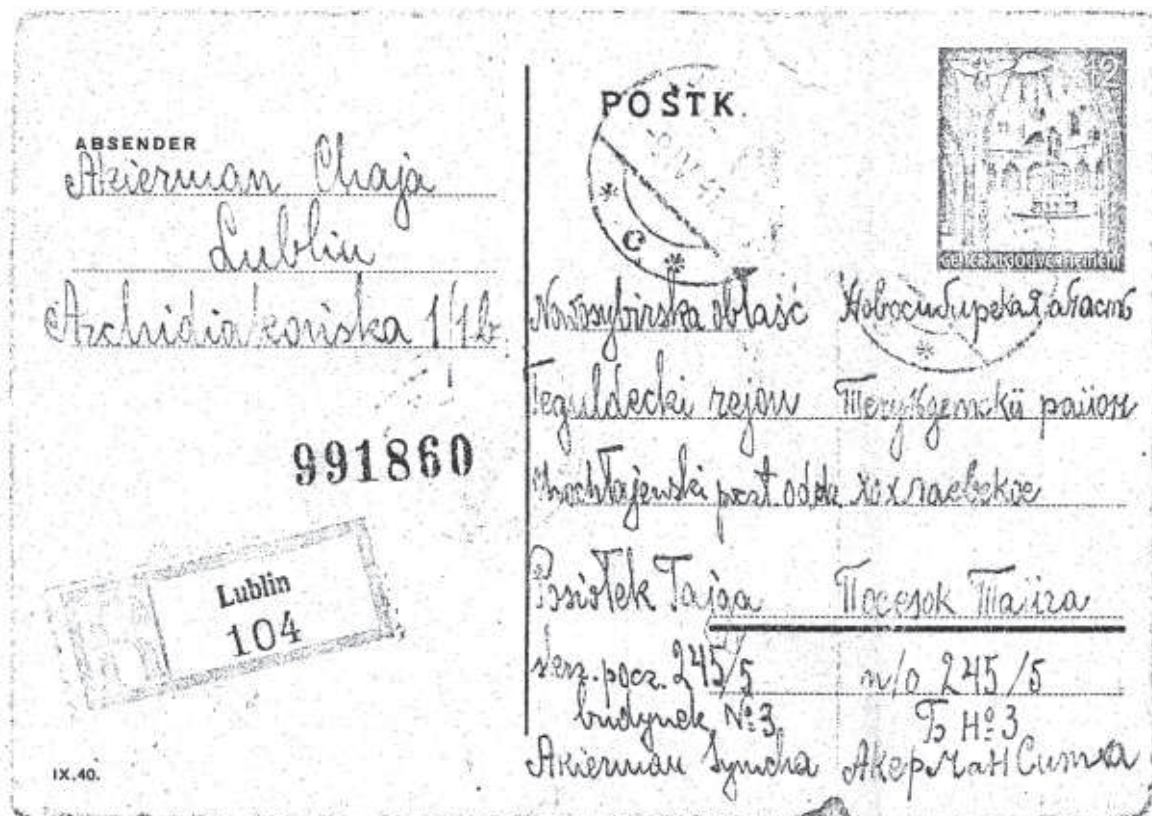 ABSENDER
Akierman Chaja
Lublin
Archidiakońska 1/1b
991860
Lublin
104
IX.40.
POSTK.
IV 41
C
12
GENERALGOUVERNEMENT
Nowosybirska obłaść Новосибирская область
Teguldecki rejon Тегульдетский район
poczt. oddz. Хохлаевское
Posiołek Tajga Поселок Тайга
skrz. pocz. 245/5 п/о 245/5
budynek № 3 Б № 3
Akierman Symcha Акерман Симха